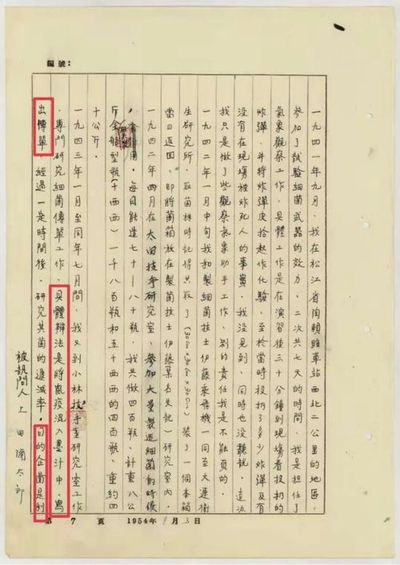 編號：
一九四一年九月，我在松江省陶賴雖車站西北二公里的地區，
參加了試驗細菌武器的效力，二次共七天的時間。我是担任了
氣象觀察工作。具體工作是在演習後三十分鐘到現場看投扔的
炸彈，并將炸彈皮拾起作化驗，至於當時投扔了多少炸彈及有
沒有在現場被炸死人的事實，我沒見到，同時也沒聽說。這次
我只是做了些觀察氣象助手工作，別的責任我是不能負的。
一九四二年一月中旬我和製細菌技士伊藤 飛機，同至大連衛
生研究所，取菌株時記得共取了 裝了一個木箱
當日返回，即將菌箱放在製菌技士伊藤 研究室內。
一九四二年四月在太田技 研究室，參加大量製造細菌的時候
每日能造七十—八十瓶，我共做四百瓶，計重八公
斤
十公斤。
一九四三年一月至同年七月間，我又到小林技 研究室工作
專門研究細菌傳單工作，具體辦法是將鼠疫混入墨汁中，寫
出傳單，經過一定時間後，研究其菌的遞減率，目的企圖是到
被訊問人 上田彌太郎
第 7 頁 1954年 月 3 日